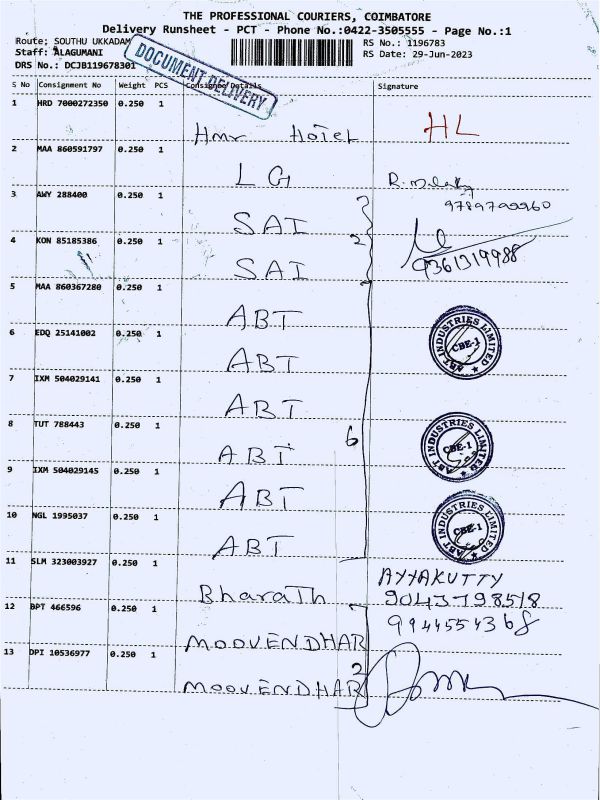 THE PROFESSIONAL COURIERS, COIMBATORE
Delivery Runsheet - PCT - Phone No.:0422-3505555 - Page No.:1
Route; SOUTHU UKKADAM
RS No.: 1196783
Staff: ALAGUMANI
RS Date: 29-Jun-2023
DRS No.: DCJB119678301
DOCUMENT DELIVERY
S No Consignment No Weight PCS Consignee Details Signature
1 HRD 7000272350 0.250 1
Hmr Hotel HL
2 MAA 860591797 0.250 1
LG
3 AWY 288400 0.250 1
SAI
4 KON 85185386 0.250 1 2
SAI 9361319988
5 MAA 860367280 0.250 1
ABT
6 EDQ 25141002 0.250 1
ABT
ABT INDUSTRIES LIMITED
CBE-1
7 IXM 504029141 0.250 1
ABT
8 TUT 788443 0.250 1 6
ABT
ABT INDUSTRIES LIMITED
CBE-1
9 IXM 504029145 0.250 1
ABT
10 NGL 1995037 0.250 1
ABT
ABT INDUSTRIES LIMITED
CBE-1
11 SLM 323003927 0.250 1 AYYAKUTTY
Bharath 9043798518
12 BPT 466596 0.250 1 9944554368
MOOVENDHAR
13 DPI 10536977 0.250 1 2
MOOVENDHAR